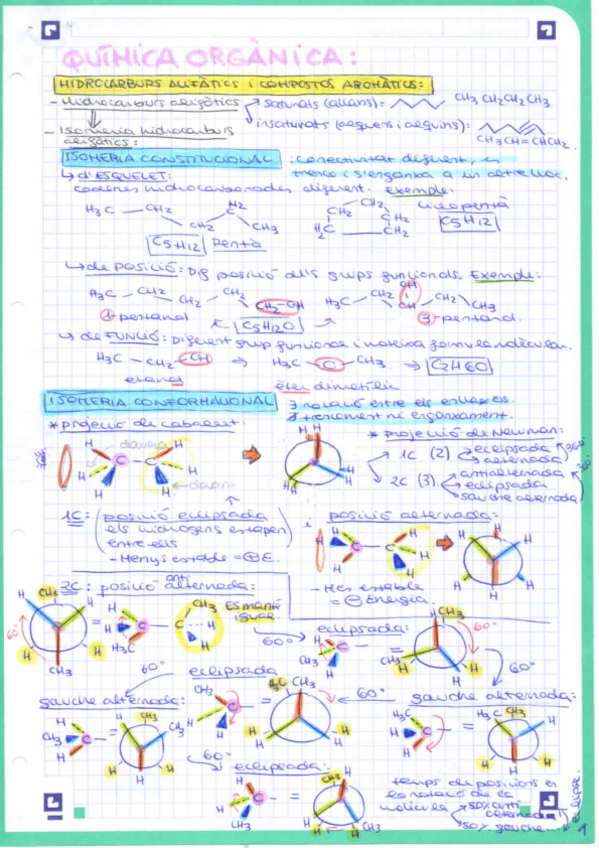 QUÍMICA ORGÀNICA:
HIDROCARBURS ALIFÀTICS I COMPOSTOS AROMÀTICS:
- Hidrocarburs alifàtics
saturats (alcans): CH3 CH2 CH2 CH3
insaturats (alquens i alquins): CH3 CH=CH CH2
- Isomeria hidrocarburs alifàtics:
ISOMERIA CONSTITUCIONAL : conectivitat diferent, es
trenca i s'enganxa a un altre lloc.
↳ d'ESQUELET:
cadenes hidrocarbonades diferent. Exemple:
H3C — CH2 CH2 CH2 CH3
C5H12 Pentà
CH2 CH2 CH2 CH2 H2C
ciclopentà
C5H12
↳ de POSICIÓ: Dif posició dels grups funcionals. Exemple:
H3C — CH2 CH2 — CH2 CH2-OH
1-pentanol
C5H12O
H3C — CH2 OH CH CH2 CH3
3-pentanol.
↳ de FUNCIÓ: Diferent grup funcional i mateixa fórmula molècular.
H3C — CH2 — OH → H3C — O — CH3 → C2H6O
etanol
èter dimetílic
ISOMERIA CONFORMACIONAL
∃ rotació entre els enllaços.
∄ trencament ni enganxament.
* Projecció de cavallet:
* Projecció de Newman:
1C (2) eclipsada
alternada
360°
2C (3) antialternada
eclipsada
gauche alternada
360°
davant
darrere
H H H C — C H H H
1C: posició eclipsada
els hidrogens estan per
entre ells
- Menys estable = ⊕E.
i posició alternada:
- Mes estable
= ⊖ Energia.
2C: posició anti alternada:
60°
CH3
H3C
Es manté igual
60°
eclipsada:
60°
60°
gauche alternada:
60°
eclipsada
60°
gauche alternada:
60°
eclipsada:
temps de posicions es
la rotació de la
molècula
50% anti
alternada
50% gauche
eclipse.
1